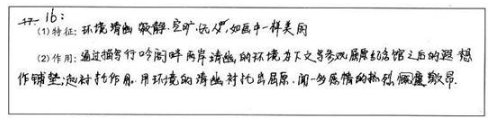 16:
(1)特征:环境清幽 寂静.空旷.优美.如画中一样美丽
(2)作用:通过描写行吟阁畔两岸清幽的环境为下文写参观屈原纪念馆之后的遐想
作铺垫.起衬托作用.用环境的清幽衬托出屈原、闻一多感情的热烈 慷慨激昂.